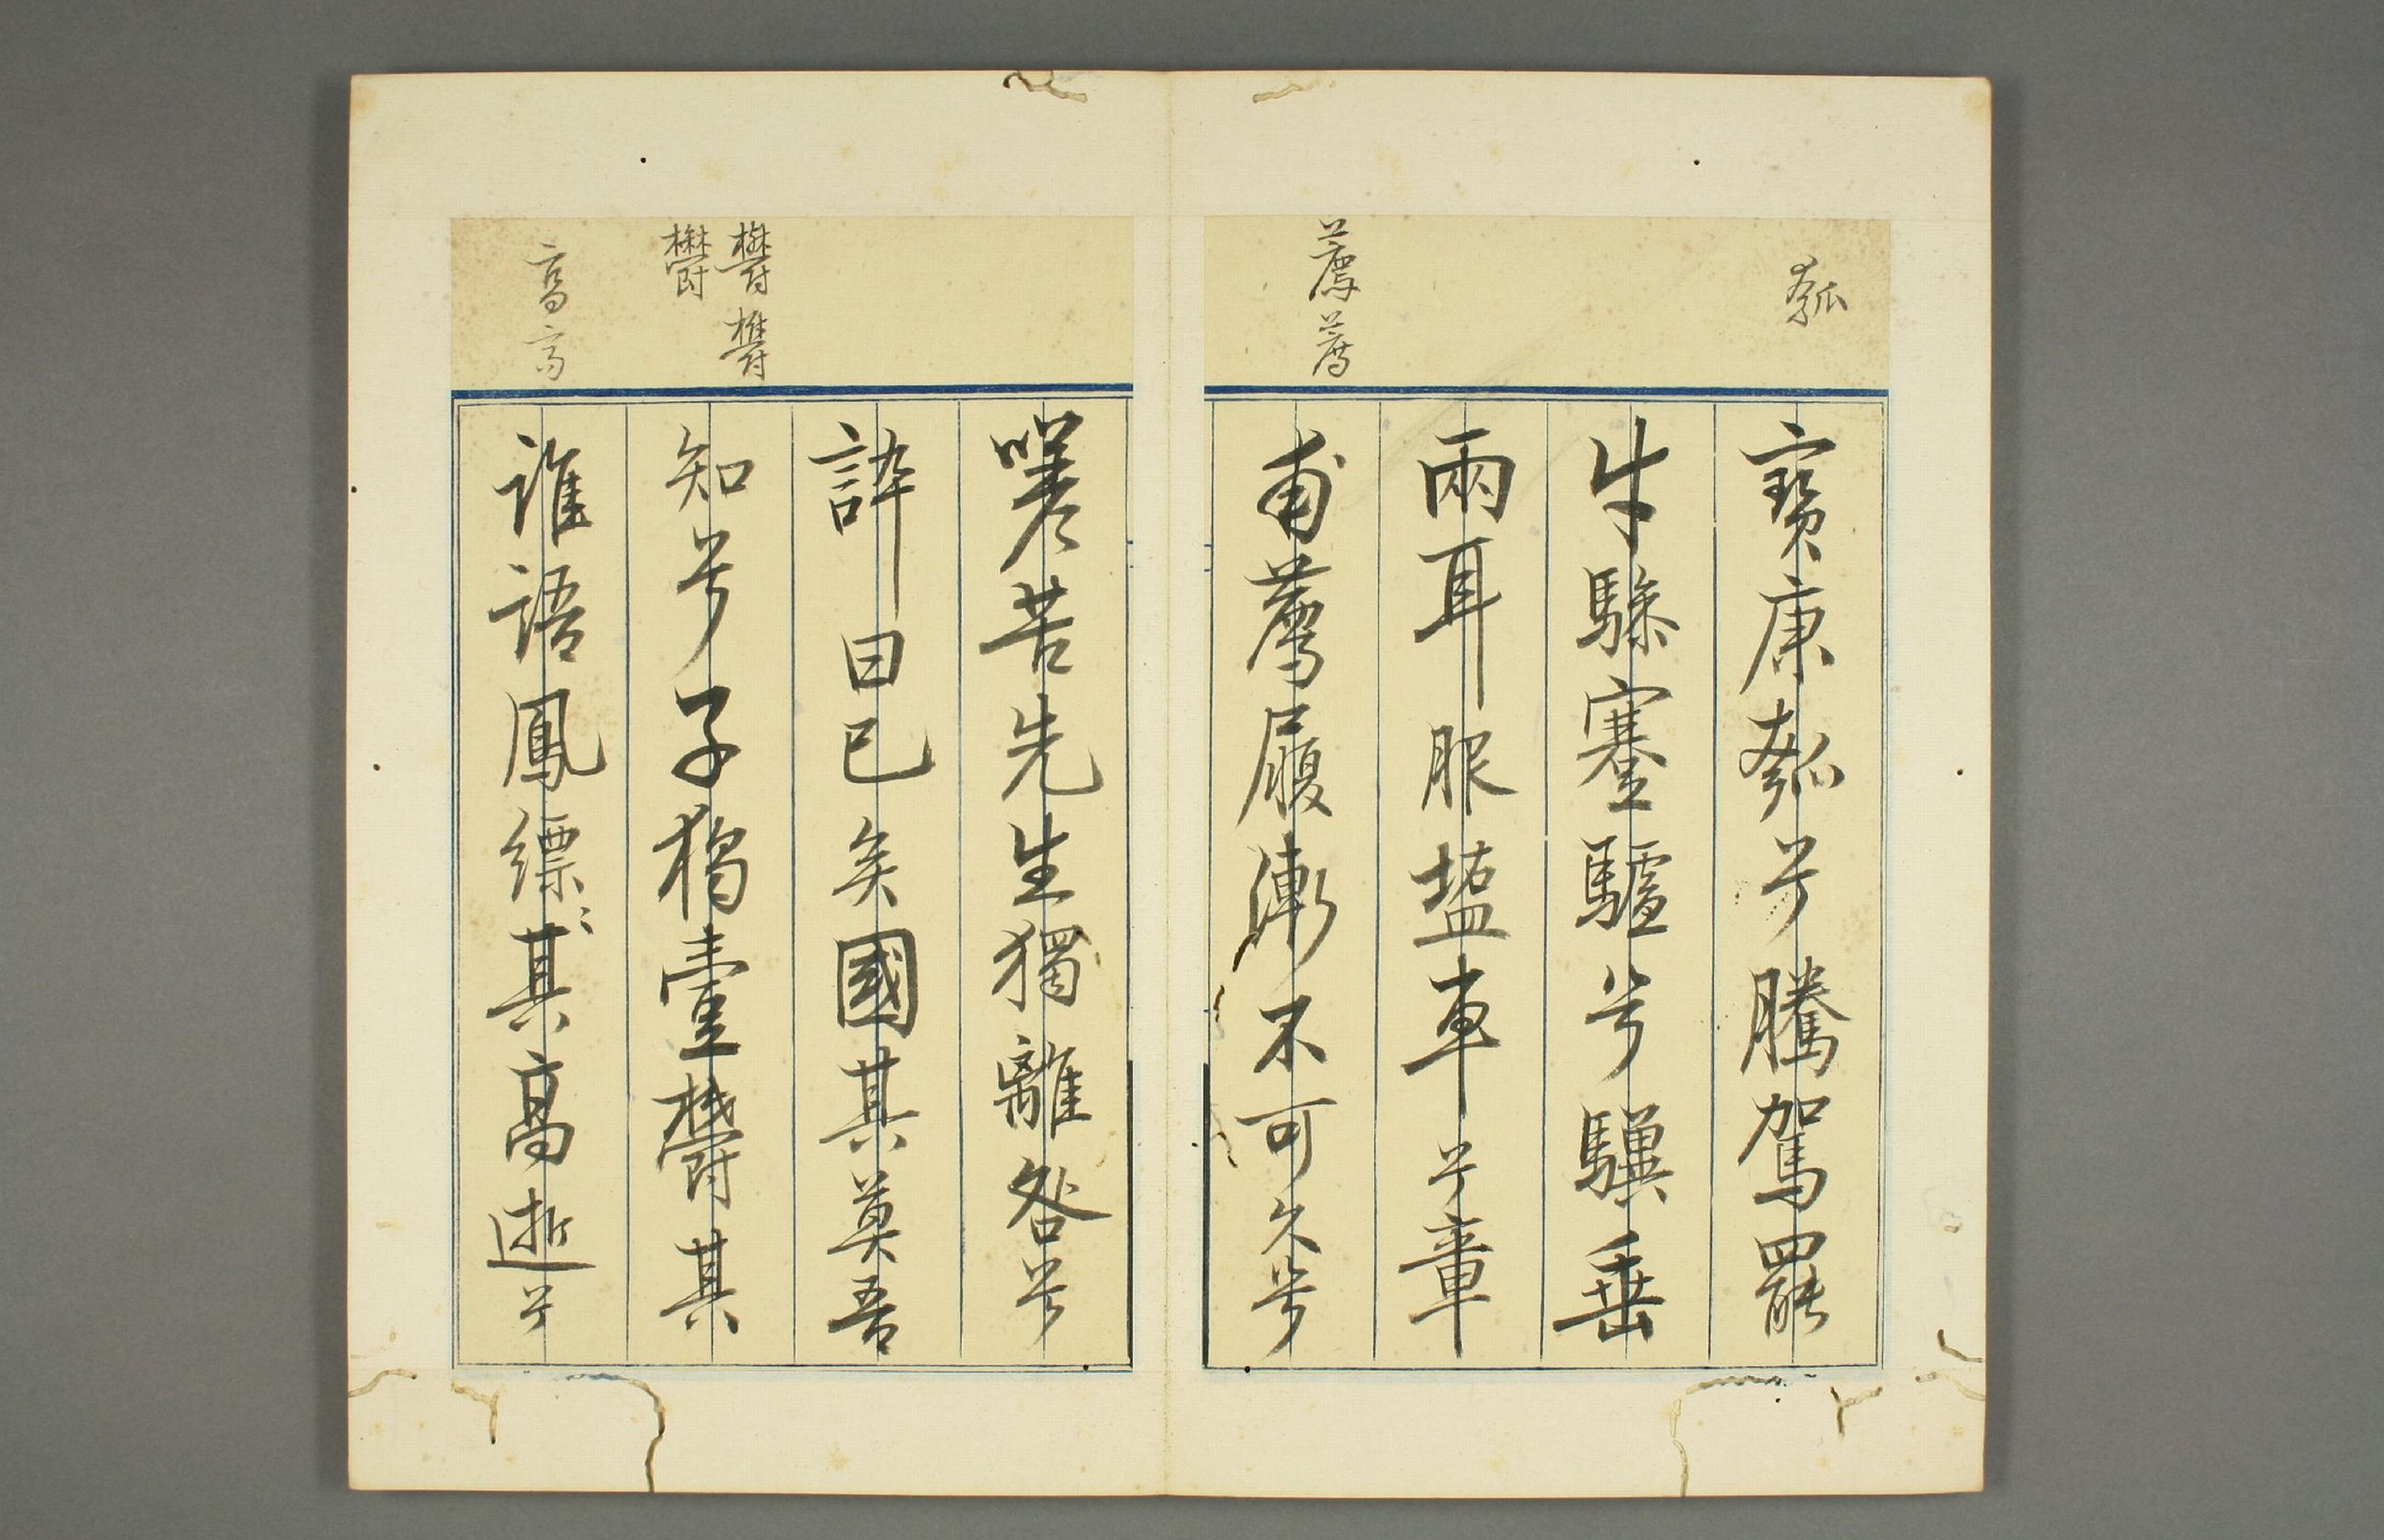 瓠
薦薦
鬱鬱
鬱
高高
寶康瓠兮騰駕罷
牛驂蹇驢兮驥垂
兩耳服塩車兮章
甫薦履漸不可久兮
嗟苦先生獨離咎兮
誶曰已矣國其莫吾
知兮子獨壹鬱其
誰語鳳縹〻其高逝兮